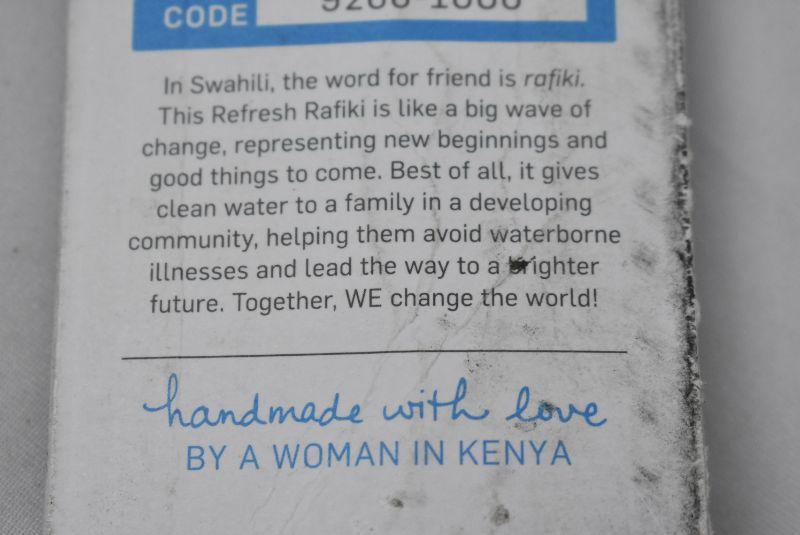 CODE
In Swahili, the word for friend is rafiki.
This Refresh Rafiki is like a big wave of
change, representing new beginnings and
good things to come. Best of all, it gives
clean water to a family in a developing
community, helping them avoid waterborne
illnesses and lead the way to a brighter
future. Together, WE change the world!
handmade with love
BY A WOMAN IN KENYA